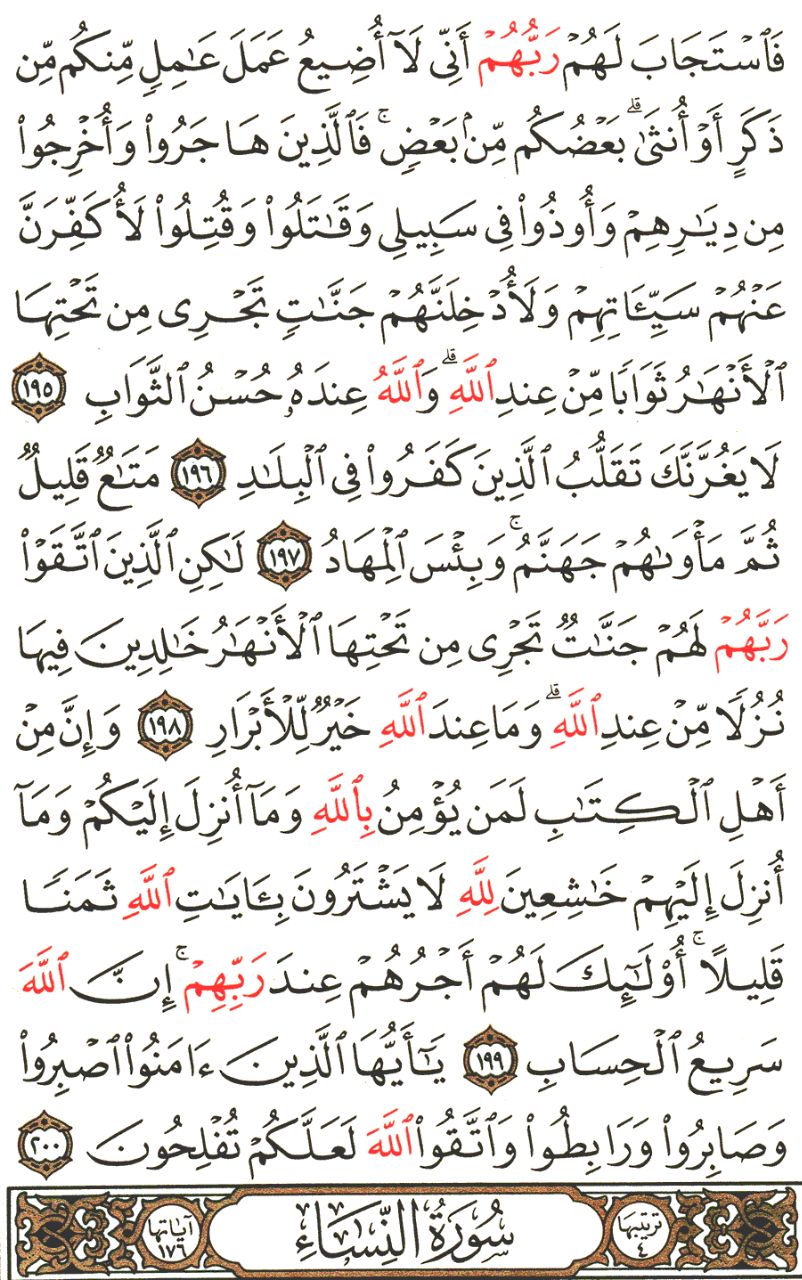 فَٱسْتَجَابَ لَهُمْ رَبُّهُمْ أَنِّى لَآ أُضِيعُ عَمَلَ عَٰمِلٍ مِّنكُم مِّن
ذَكَرٍ أَوْ أُنثَىٰ ۖ بَعْضُكُم مِّنۢ بَعْضٍ ۚ فَٱلَّذِينَ هَاجَرُوا۟ وَأُخْرِجُوا۟
مِن دِيَٰرِهِمْ وَأُوذُوا۟ فِى سَبِيلِى وَقَٰتَلُوا۟ وَقُتِلُوا۟ لَأُكَفِّرَنَّ
عَنْهُمْ سَيِّـَٔاتِهِمْ وَلَأُدْخِلَنَّهُمْ جَنَّٰتٍ تَجْرِى مِن تَحْتِهَا
ٱلْأَنْهَٰرُ ثَوَابًا مِّنْ عِندِ ٱللَّهِ ۗ وَٱللَّهُ عِندَهُۥ حُسْنُ ٱلثَّوَابِ ١٩٥
لَا يَغُرَّنَّكَ تَقَلُّبُ ٱلَّذِينَ كَفَرُوا۟ فِى ٱلْبِلَٰدِ ١٩٦ مَتَٰعٌ قَلِيلٌ
ثُمَّ مَأْوَىٰهُمْ جَهَنَّمُ ۚ وَبِئْسَ ٱلْمِهَادُ ١٩٧ لَٰكِنِ ٱلَّذِينَ ٱتَّقَوْا۟
رَبَّهُمْ لَهُمْ جَنَّٰتٌ تَجْرِى مِن تَحْتِهَا ٱلْأَنْهَٰرُ خَٰلِدِينَ فِيهَا
نُزُلًا مِّنْ عِندِ ٱللَّهِ ۗ وَمَا عِندَ ٱللَّهِ خَيْرٌ لِّلْأَبْرَارِ ١٩٨ وَإِنَّ مِنْ
أَهْلِ ٱلْكِتَٰبِ لَمَن يُؤْمِنُ بِٱللَّهِ وَمَآ أُنزِلَ إِلَيْكُمْ وَمَآ
أُنزِلَ إِلَيْهِمْ خَٰشِعِينَ لِلَّهِ لَا يَشْتَرُونَ بِـَٔايَٰتِ ٱللَّهِ ثَمَنًا
قَلِيلًا ۚ أُو۟لَٰٓئِكَ لَهُمْ أَجْرُهُمْ عِندَ رَبِّهِمْ ۚ إِنَّ ٱللَّهَ
سَرِيعُ ٱلْحِسَابِ ١٩٩ يَٰٓأَيُّهَا ٱلَّذِينَ ءَامَنُوا۟ ٱصْبِرُوا۟
وَصَابِرُوا۟ وَرَابِطُوا۟ وَٱتَّقُوا۟ ٱللَّهَ لَعَلَّكُمْ تُفْلِحُونَ ٢٠٠
ترتيبها ٤ سُورَةُ النِّسَاءِ آياتها ١٧٦